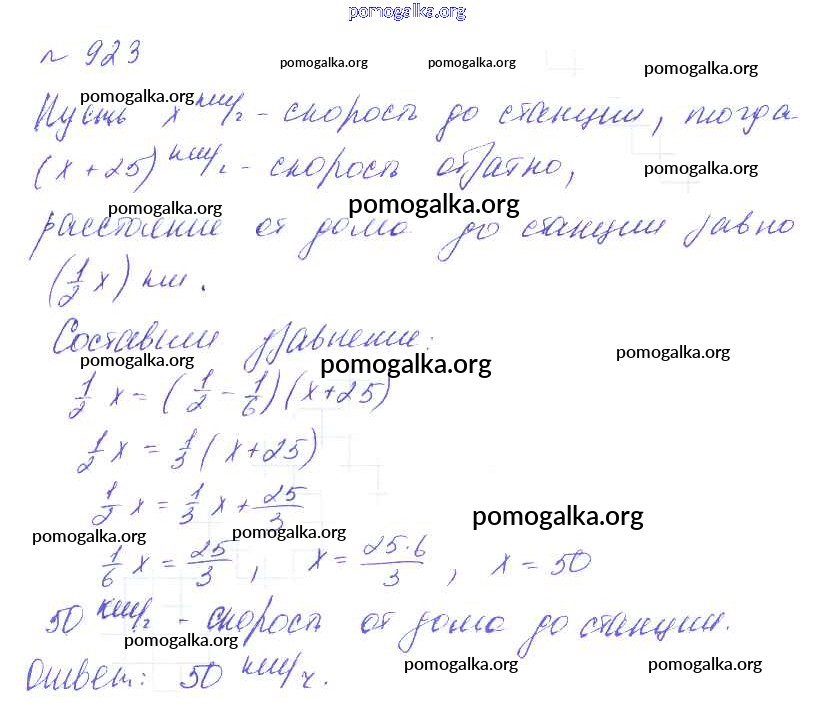 pomogalka.org
№ 923
pomogalka.org pomogalka.org pomogalka.org
pomogalka.org
Пусть x км/ч - скорость до станции, тогда
(x + 25) км/ч - скорость обратно,
pomogalka.org
pomogalka.org pomogalka.org
расстояние от дома до станции равно
(1/2 x) км.
Составим уравнение:
pomogalka.org pomogalka.org pomogalka.org
1/2 x = (1/2 - 1/6)(x+25)
1/2 x = 1/3 (x+25)
1/2 x = 1/3 x + 25/3
pomogalka.org pomogalka.org pomogalka.org
1/6 x = 25/3, x = 25·6/3, x = 50
50 км/ч - скорость от дома до станции.
pomogalka.org
Ответ: 50 км/ч.
pomogalka.org pomogalka.org